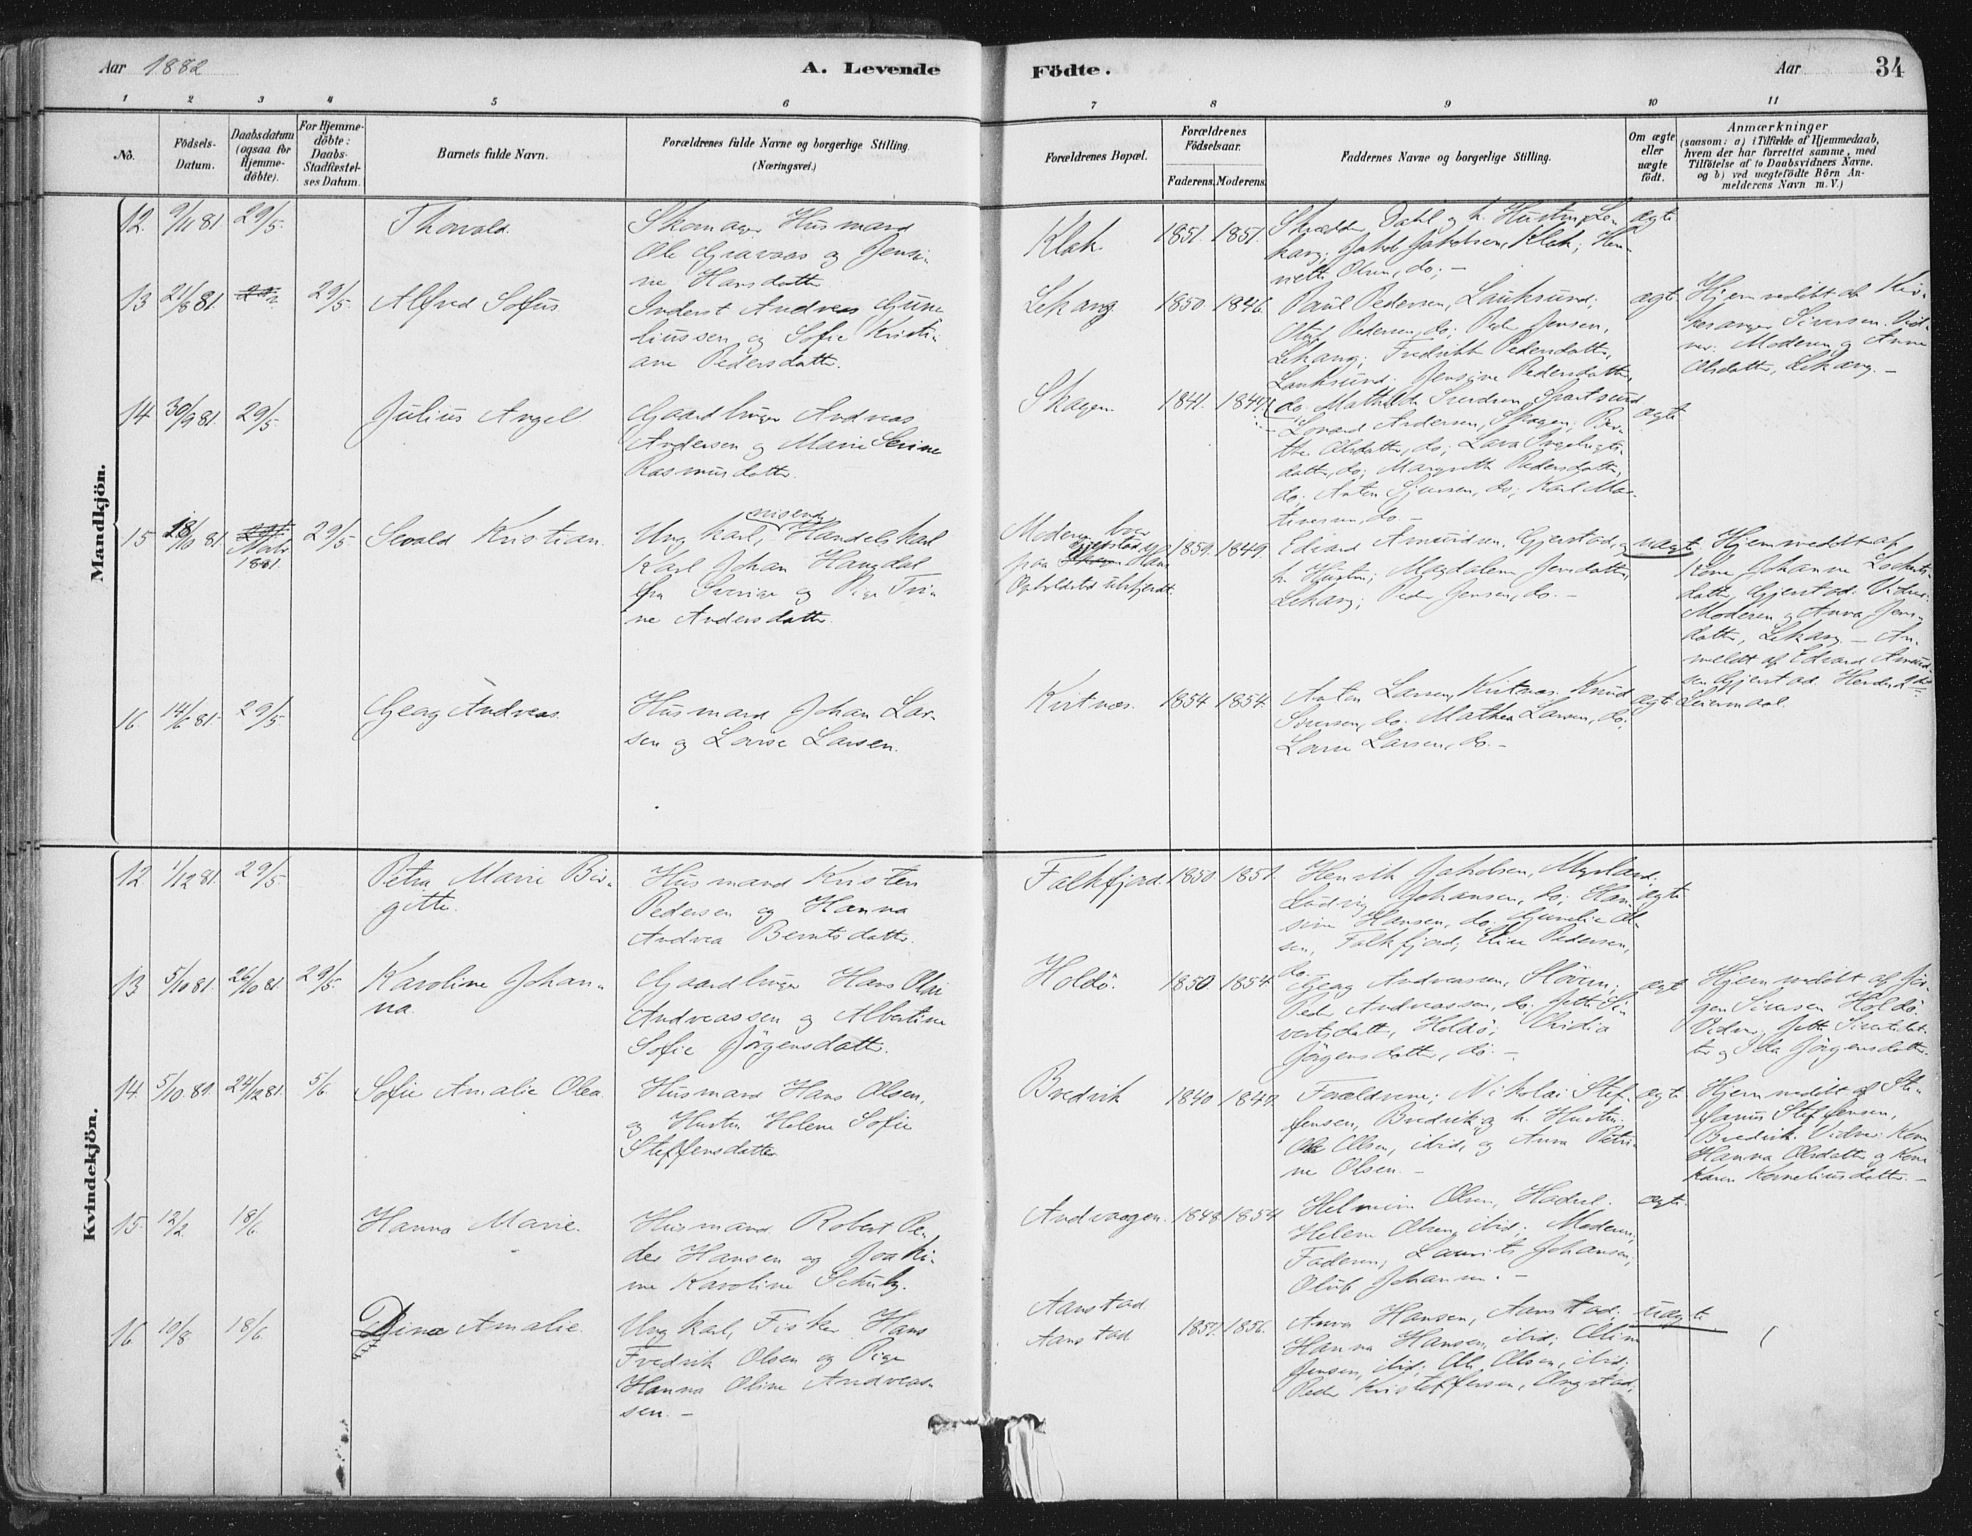 Aar 1882
A. Levende
Födte.
Aar
34
1 2 3 4 5 6 7 8 9 10 11
No.
Födsels-
Datum.
Daabsdatum
(ogsaa for
Hjemme-
döbte).
For Hjemme-
döbte:
Daabs-
Stadfæstel-
ses Datum.
Barnets fulde Navn.
Forældrenes fulde Navne og borgerlige Stilling
(Næringsvei.)
Forældrenes Bopæl.
Forældrenes
Födselsaar.
Faderens. Moderens.
Faddernes Navne og borgerlige Stilling.
Om ægte
eller
uægte
födt.
Anmærkninger
(saasom: a) i Tilfælde af Hjemmedaab,
hvem der har forrettet samme, med
Tilföielse af to Daabsvidners Navne.
og b) ved uegtefödte Börn An-
melderens Navn m. V.)
Mandkjön.
12. 9/11 81. 29/5. Thorvald
Skomager Husmand
Ole Gravaas og Jensi-
ne Hansdatter
Klak 1851. 1851.
Skrædder Dahl og h. Hustru, Le-
kang; Jakob Jakobsen, Klak; Hen-
nette Olsen, do; –
ægte
13 21/8 81. 29/5. Alfred Sofus
Inderst Andreas Gune-
liussen og Sofie Kristi-
ane Pedersdatter.
Lekang 1850. 1846.
Paul Pedersen, Lauksund;
Pedersen, do; Peder Jensen,
Lekang; Fredrikke Pedersdatter,
Lauksund. Jensine Pedersdatter,
do. Mathilde
ægte
Hjemmedöbt af
Sivertsen. Vid-
ner: Moderen og Anne
Olsdatter, Lekang. –
14 30/9 81. 29/5. Julius Angel
Gaardbruger Andreas
Andersen og Marie Serine
Rasmusdatter.
Skagen. 1841. 1844
Edvard Andersen, Skagen; Ber-
the Olsdatter, do; Lava
datter, do; Margrethe Pedersdatter,
do; Anton Sjursen, do; Karl Mar-
tinesen, do. –
ægte
15 18/10 81. 1881 29/5. Sevald Kristian.
Ung karl, reisende Handelskarl
Karl Johan Hangdal
fra Sverige og Pige Tri-
ne Andersdatter
Moderen bor
paa Gjerstad. Hans
Opholdssted ubekjendt.
1859. 1849.
Edvard Amundsen, Gjerstad, og
h. Hustru; Magdalena Jensdatter,
Lekang; Peder Jensen, do. –
uægte.
Hjemmedöbt af
Kone Johanne
datter, Gjerstad. Vidner
Moderen og Anna Jens-
datter, Lekang. – An-
meldt af Edvard Amund-
sen Gjerstad.
Leiermaal.
16 14/6 81. 29/5 Georg Andreas.
Husmand Johan Lar-
sen og Lovise Larsen.
Kvitnæs. 1854. 1854.
Anton Larsen, Kvitnæs. Knud
Sörensen, do. Mathea Larsen, do.
Lovise Larsen, do. –
ægte
Kvindekjön.
12. 1/12 81. 29/5. Petra Marie Bir-
gitte.
Husmand Kristen
Pedersen og Hanna
Andrea Berntsdatter.
Falkfjord. 1850. 1851.
Henrik Jakobsen, Myrland;
Ludvig Johansen, do; Han-
sine Hansen, do; Gunelie Ol-
sen, Falkfjord; Eline Pedersen,
do.
ægte
13 5/10 81. 26/10 81. 29/5. Karoline Johan-
na.
Gaardbruger Hans Olai
Andreassen og Albertine
Sofie Jörgensdatter.
Holdö. 1850. 1854.
Georg Andreassen, Stören;
Peder Andreassen, do. Jette Si-
vertsdatter, Holdö; Oridia
Jörgensdatter, do. –
ægt
Hjemmedöbt af Jör-
gen Sivertsen Holdö.
Vidner: Jette Sivertsdat-
ter og Ida Jörgensdatter.
14. 5/10 81. 24/12 81. 5/6. Sofie Amalie Olea.
Husmand Hans Olsen,
og Hustru Helene Sofie
Steffensdatter
Bredvik 1840. 1840.
Forældrene; Nikolai Stef-
fensen, Bredvik og h. Hustru.
Ole Olsen, ibid, og Anna Petri-
ne Olsen. –
ægte
Hjemmedöbt af Ste-
fanus Steffensen,
Bredvik. Vidner: Kone
Hanna Olsdatter og Kone
Karen Korneliusdatter. –
15. 12/2 18/6. Hanna Marie.
Husmand Robert Pe-
der Hansen og Joaki-
me Karoline Schulz.
Andvaagen. 1848. 1854.
Helmin Olsen, Hadsel.
Helene Olsen, ibid; Moderen,
Faderen; Laurits Johansen,
Oluf Johansen. –
ægte.
16 10/8 18/6 Dina Amalie.
Ung karl, Fisker Hans
Fredrik Olsen og Pige
Hanna Oline Andreas-
sen. –
Aanstad
Aanstad 1857. 1856.
Anna Hansen, Aanstad;
Hanna Hansen, ibid; Oline
Jensen, ibid; Ole Olsen, ibid;
Peder Kristoffersen, Ongstad;
uægte